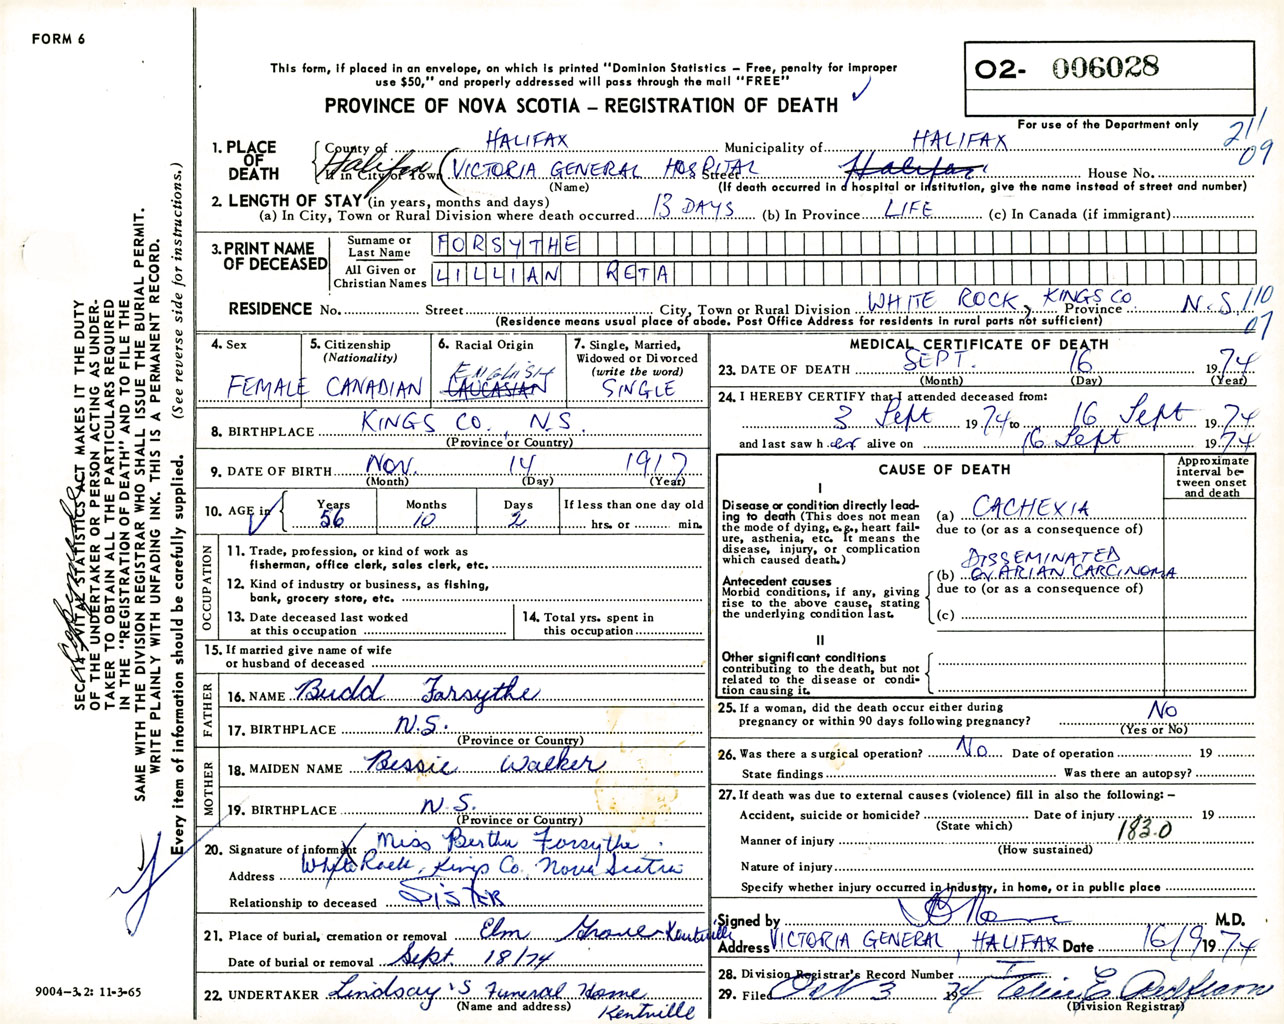 FORM 6
This form, if placed in an envelope, on which is printed "Dominion Statistics – Free, penalty for improper
use $50," and properly addressed will pass through the mail "FREE"
PROVINCE OF NOVA SCOTIA – REGISTRATION OF DEATH
O2- 006028
For use of the Department only
211
09
1. PLACE OF DEATH
County of HALIFAX Municipality of HALIFAX
If in City or Town Halifax (VICTORIA GENERAL HOSPITAL Street Halifax House No.
(Name) (If death occurred in a hospital or institution, give the name instead of street and number)
2. LENGTH OF STAY (in years, months and days)
(a) In City, Town or Rural Division where death occurred 13 DAYS (b) In Province LIFE (c) In Canada (if immigrant)
3. PRINT NAME OF DECEASED
Surname or Last Name FORSYTHE
All Given or Christian Names LILLIAN RETA
RESIDENCE No. Street City, Town or Rural Division WHITE ROCK, KINGS CO. Province N.S. 110
(Residence means usual place of abode. Post Office Address for residents in rural parts not sufficient) 07
4. Sex FEMALE
5. Citizenship (Nationality) CANADIAN
6. Racial Origin ENGLISH CAUCASIAN
7. Single, Married, Widowed or Divorced (write the word) SINGLE
8. BIRTHPLACE KINGS CO., N.S.
(Province or Country)
9. DATE OF BIRTH NOV. 14 1917
(Month) (Day) (Year)
10. AGE in Years 56 Months 10 Days 2 If less than one day old hrs. or min.
OCCUPATION
11. Trade, profession, or kind of work as
fisherman, office clerk, sales clerk, etc.
12. Kind of industry or business, as fishing,
bank, grocery store, etc.
13. Date deceased last worked
at this occupation
14. Total yrs. spent in
this occupation
15. If married give name of wife
or husband of deceased
FATHER
16. NAME Budd Forsythe
17. BIRTHPLACE N.S.
(Province or Country)
MOTHER
18. MAIDEN NAME Bessie Walker
19. BIRTHPLACE N.S.
(Province or Country)
20. Signature of informant Miss Bertha Forsythe
Address White Rock, Kings Co, Nova Scotia
Relationship to deceased SISTER
21. Place of burial, cremation or removal Elm Grove - Kentville
Date of burial or removal Sept. 18/74
22. UNDERTAKER Lindsay's Funeral Home
(Name and address) Kentville
MEDICAL CERTIFICATE OF DEATH
23. DATE OF DEATH SEPT. 16 1974
(Month) (Day) (Year)
24. I HEREBY CERTIFY that I attended deceased from:
3 Sept 1974 to 16 Sept 1974
and last saw her alive on 16 Sept 1974
CAUSE OF DEATH
Approximate interval between onset and death
I
Disease or condition directly lead-
ing to death (This does not mean
the mode of dying, e.g., heart fail-
ure, asthenia, etc. It means the
disease, injury, or complication
which caused death.)
(a) CACHEXIA
due to (or as a consequence of)
Antecedent causes
Morbid conditions, if any, giving
rise to the above cause, stating
the underlying condition last.
(b) DISSEMINATED
OVARIAN CARCINOMA
due to (or as a consequence of)
(c)
II
Other significant conditions
contributing to the death, but not
related to the disease or condi-
tion causing it.
25. If a woman, did the death occur either during
pregnancy or within 90 days following pregnancy? No
(Yes or No)
26. Was there a surgical operation? No. Date of operation 19
State findings Was there an autopsy?
27. If death was due to external causes (violence) fill in also the following: –
Accident, suicide or homicide? Date of injury 19
(State which) 183.0
Manner of injury
(How sustained)
Nature of injury
Specify whether injury occurred in industry, in home, or in public place
Signed by M.D.
Address VICTORIA GENERAL, HALIFAX Date 16/9 1974
28. Division Registrar's Record Number
29. Filed Oct 3 1974
(Division Registrar)
SEC. 14 VITAL STATISTICS ACT MAKES IT THE DUTY
OF THE UNDERTAKER OR PERSON ACTING AS UNDER-
TAKER TO OBTAIN ALL THE PARTICULARS REQUIRED
IN THE "REGISTRATION OF DEATH" AND TO FILE THE
SAME WITH THE DIVISION REGISTRAR WHO SHALL ISSUE THE BURIAL PERMIT.
WRITE PLAINLY WITH UNFADING INK. THIS IS A PERMANENT RECORD.
Every item of information should be carefully supplied. (See reverse side for instructions.)
9004-3.2: 11-3-65